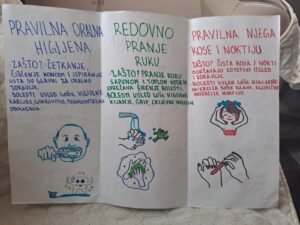 PRAVILNA ORALNA
HIGIJENA
-ZAŠTO? ČETKANJE,
ČIŠĆENJE KONCEM I ISPIRANJE
USTA SU GLAVNI ZA ORALNO
ZDRAVLJE.
BOLESTI USLED LOŠE HIGIJENE:
KARIJES, GINGIVITIS, PARADONTALNA
REDOVNO
PRANJE
RUKU
-ZAŠTO? PRANJE RUKU
SAPUNOM I TOPLOM VODOM
SPREČAVA ŠIRENJE BOLESTI.
BOLESTI USLED LOŠE HIGIJENE:
GRIP, CRIJEVNE INFEKCIJE
PRAVILNA NJEGA
KOSE I NOKTIJU
-ZAŠTO? ČISTA KOSA I NOKTI
ODRŽAVAJU ESTETSKI IZGLED
I ZDRAVLJE.
BOLESTI USLED LOŠE HIGIJENE:
INFEKCIJA KOŽE GLAVE, GLJIVIČNE
INFEKCIJE NOKTIJU.